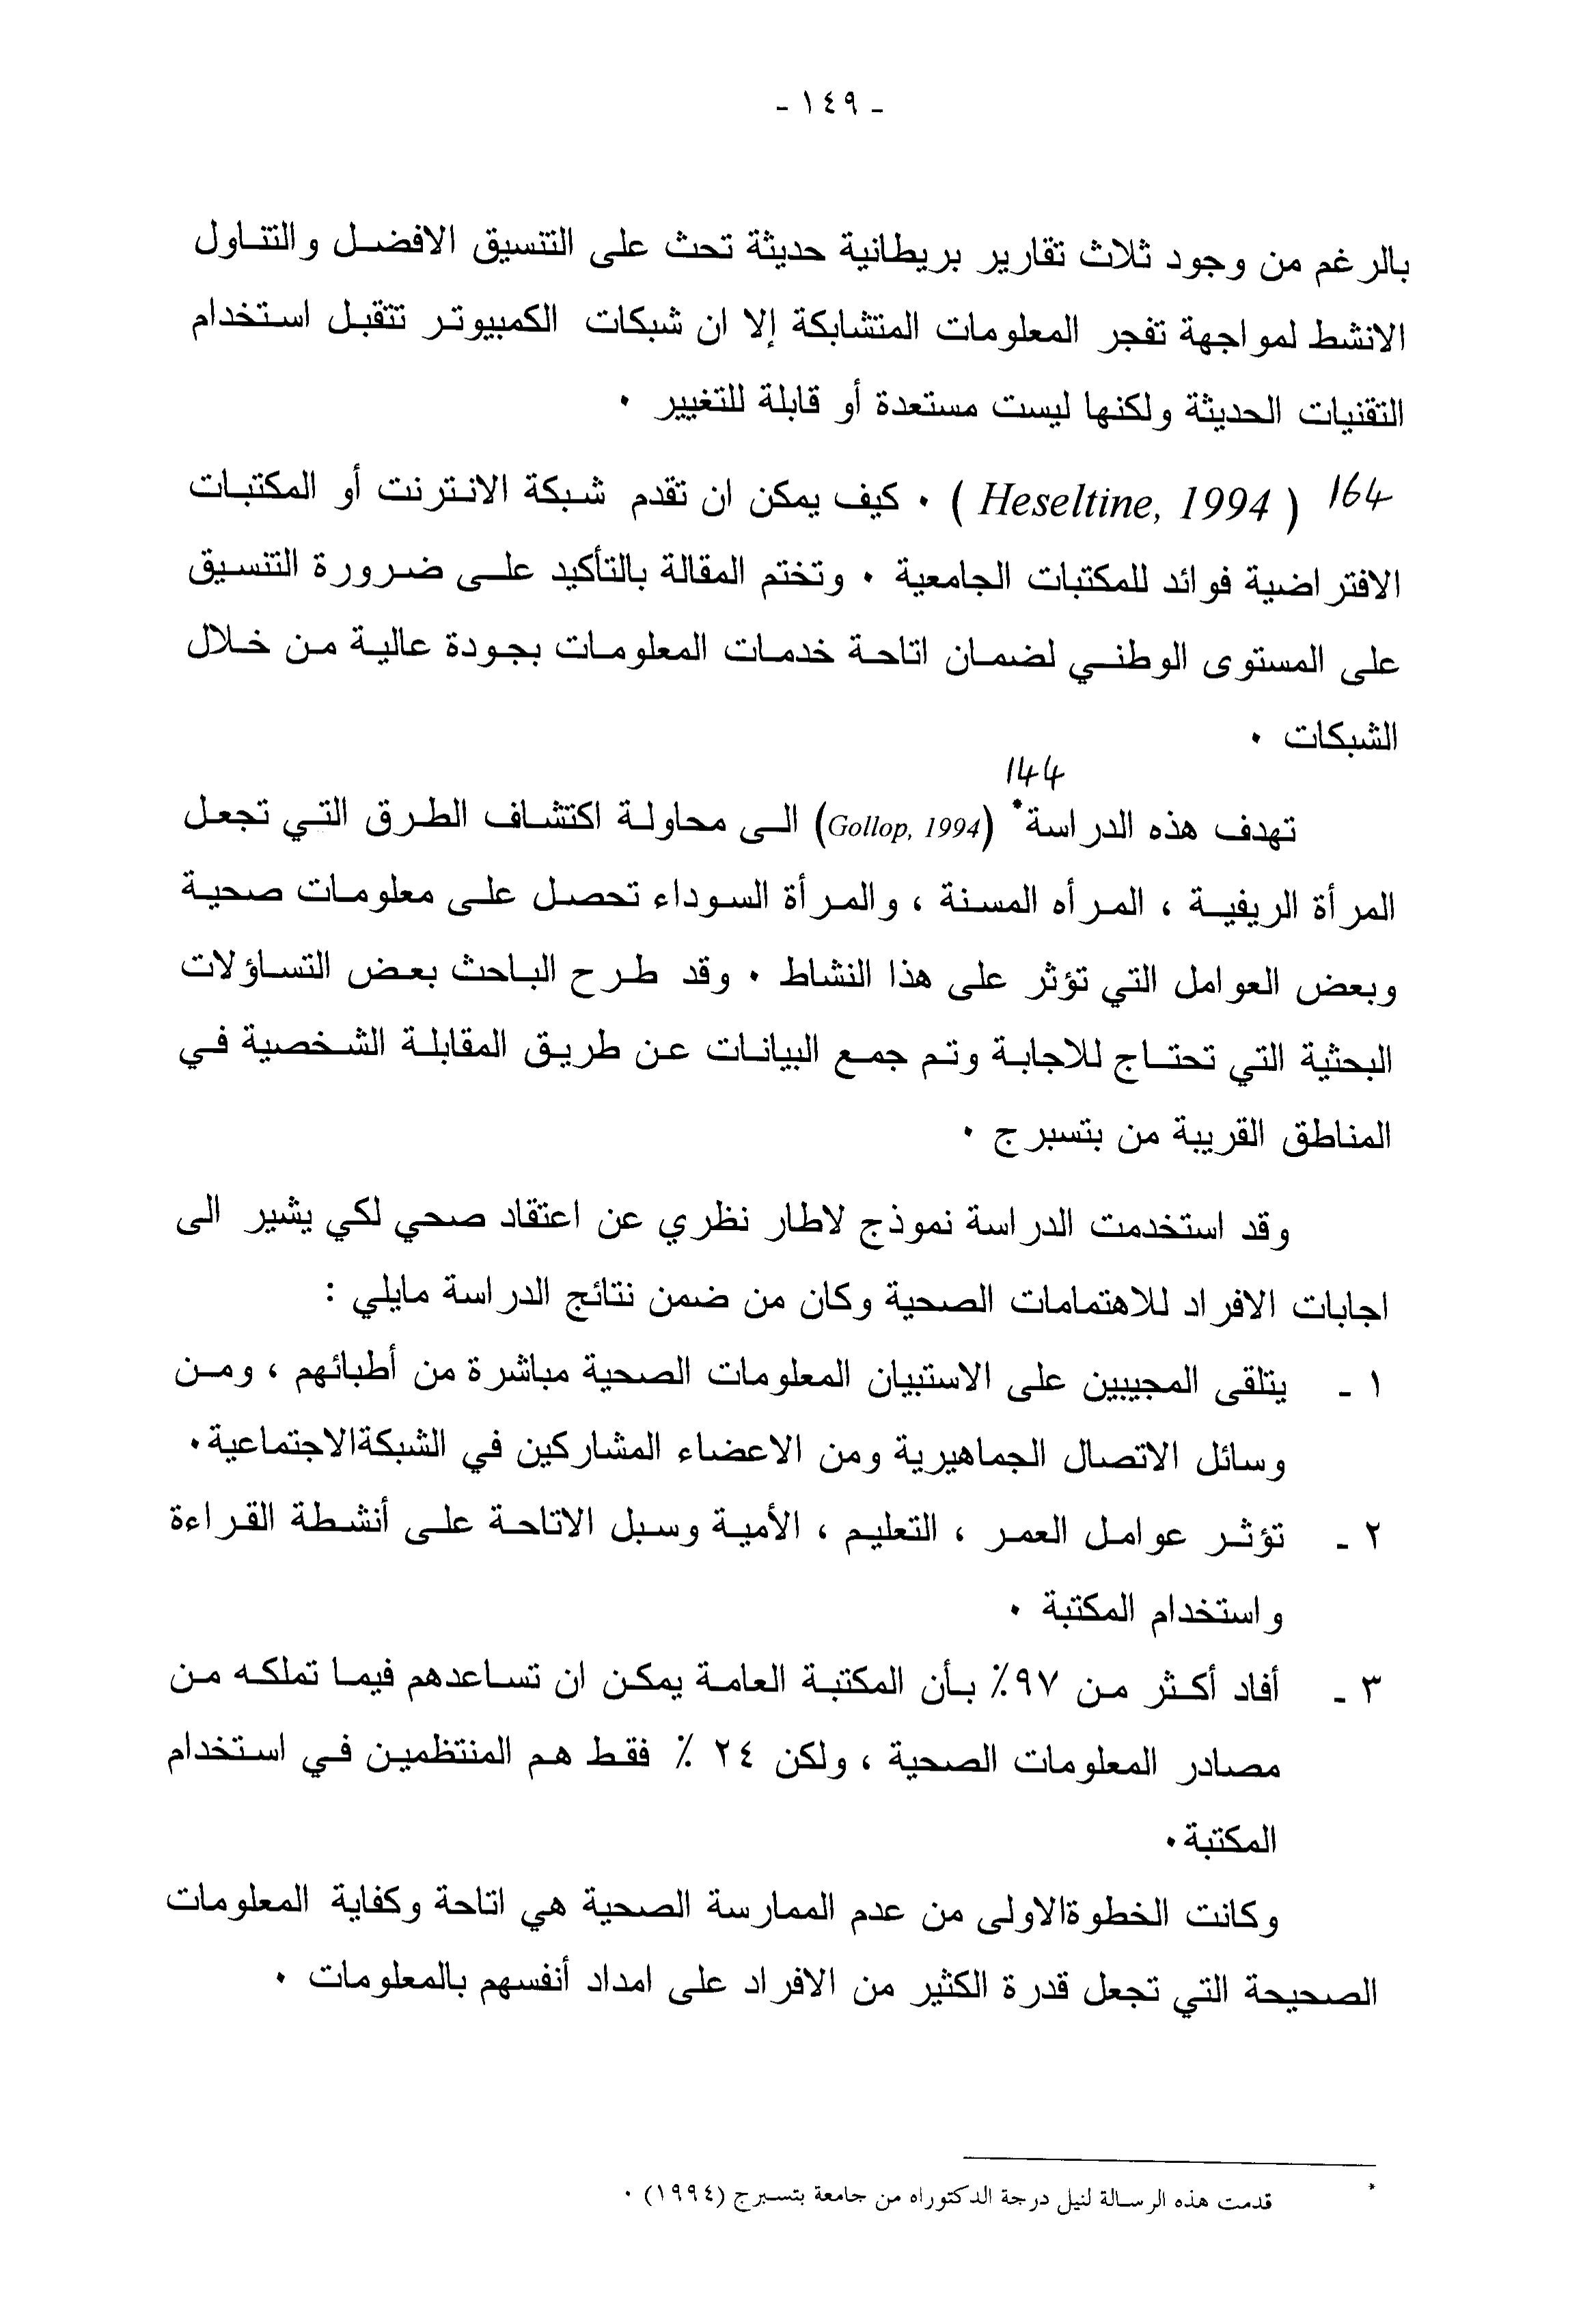 - ١٤٩ -
بالرغم من وجود ثلاث تقارير بريطانية حديثة تحث على التنسيق الافضل والتناول
الانشط لمواجهة تفجر المعلومات المتشابكة إلا ان شبكات الكمبيوتر تتقبل استخدام
التقنيات الحديثة ولكنها ليست مستعدة أو قابلة للتغيير ٠
164 ( Heseltine, 1994 ) ٠ كيف يمكن ان تقدم شبكة الانترنت أو المكتبات
الافتراضية فوائد للمكتبات الجامعية ٠ وتختم المقالة بالتأكيد على ضرورة التنسيق
على المستوى الوطني لضمان اتاحة خدمات المعلومات بجودة عالية من خلال
الشبكات ٠
144
تهدف هذه الدراسة* (Gollop, 1994) الى محاولة اكتشاف الطرق التي تجعل
المرأة الريفية ، المرأه المسنة ، والمرأة السوداء تحصل على معلومات صحية
وبعض العوامل التي تؤثر على هذا النشاط ٠ وقد طرح الباحث بعض التساؤلات
البحثية التي تحتاج للاجابة وتم جمع البيانات عن طريق المقابلة الشخصية في
المناطق القريبة من بتسبرج ٠
وقد استخدمت الدراسة نموذج لاطار نظري عن اعتقاد صحي لكي يشير الى
اجابات الافراد للاهتمامات الصحية وكان من ضمن نتائج الدراسة مايلي :
١ - يتلقى المجيبين على الاستبيان المعلومات الصحية مباشرة من أطبائهم ، ومن
وسائل الاتصال الجماهيرية ومن الاعضاء المشاركين في الشبكةالاجتماعية٠
٢ - تؤثر عوامل العمر ، التعليم ، الأمية وسبل الاتاحة على أنشطة القراءة
واستخدام المكتبة ٠
٣ - أفاد أكثر من ٩٧٪ بأن المكتبة العامة يمكن ان تساعدهم فيما تملكه من
مصادر المعلومات الصحية ، ولكن ٢٤ ٪ فقط هم المنتظمين في استخدام
المكتبة٠
وكانت الخطوةالاولى من عدم الممارسة الصحية هي اتاحة وكفاية المعلومات
الصحيحة التي تجعل قدرة الكثير من الافراد على امداد أنفسهم بالمعلومات ٠
* قدمت هذه الرسالة لنيل درجة الدكتوراه من جامعة بتسبرج (١٩٩٤) ٠